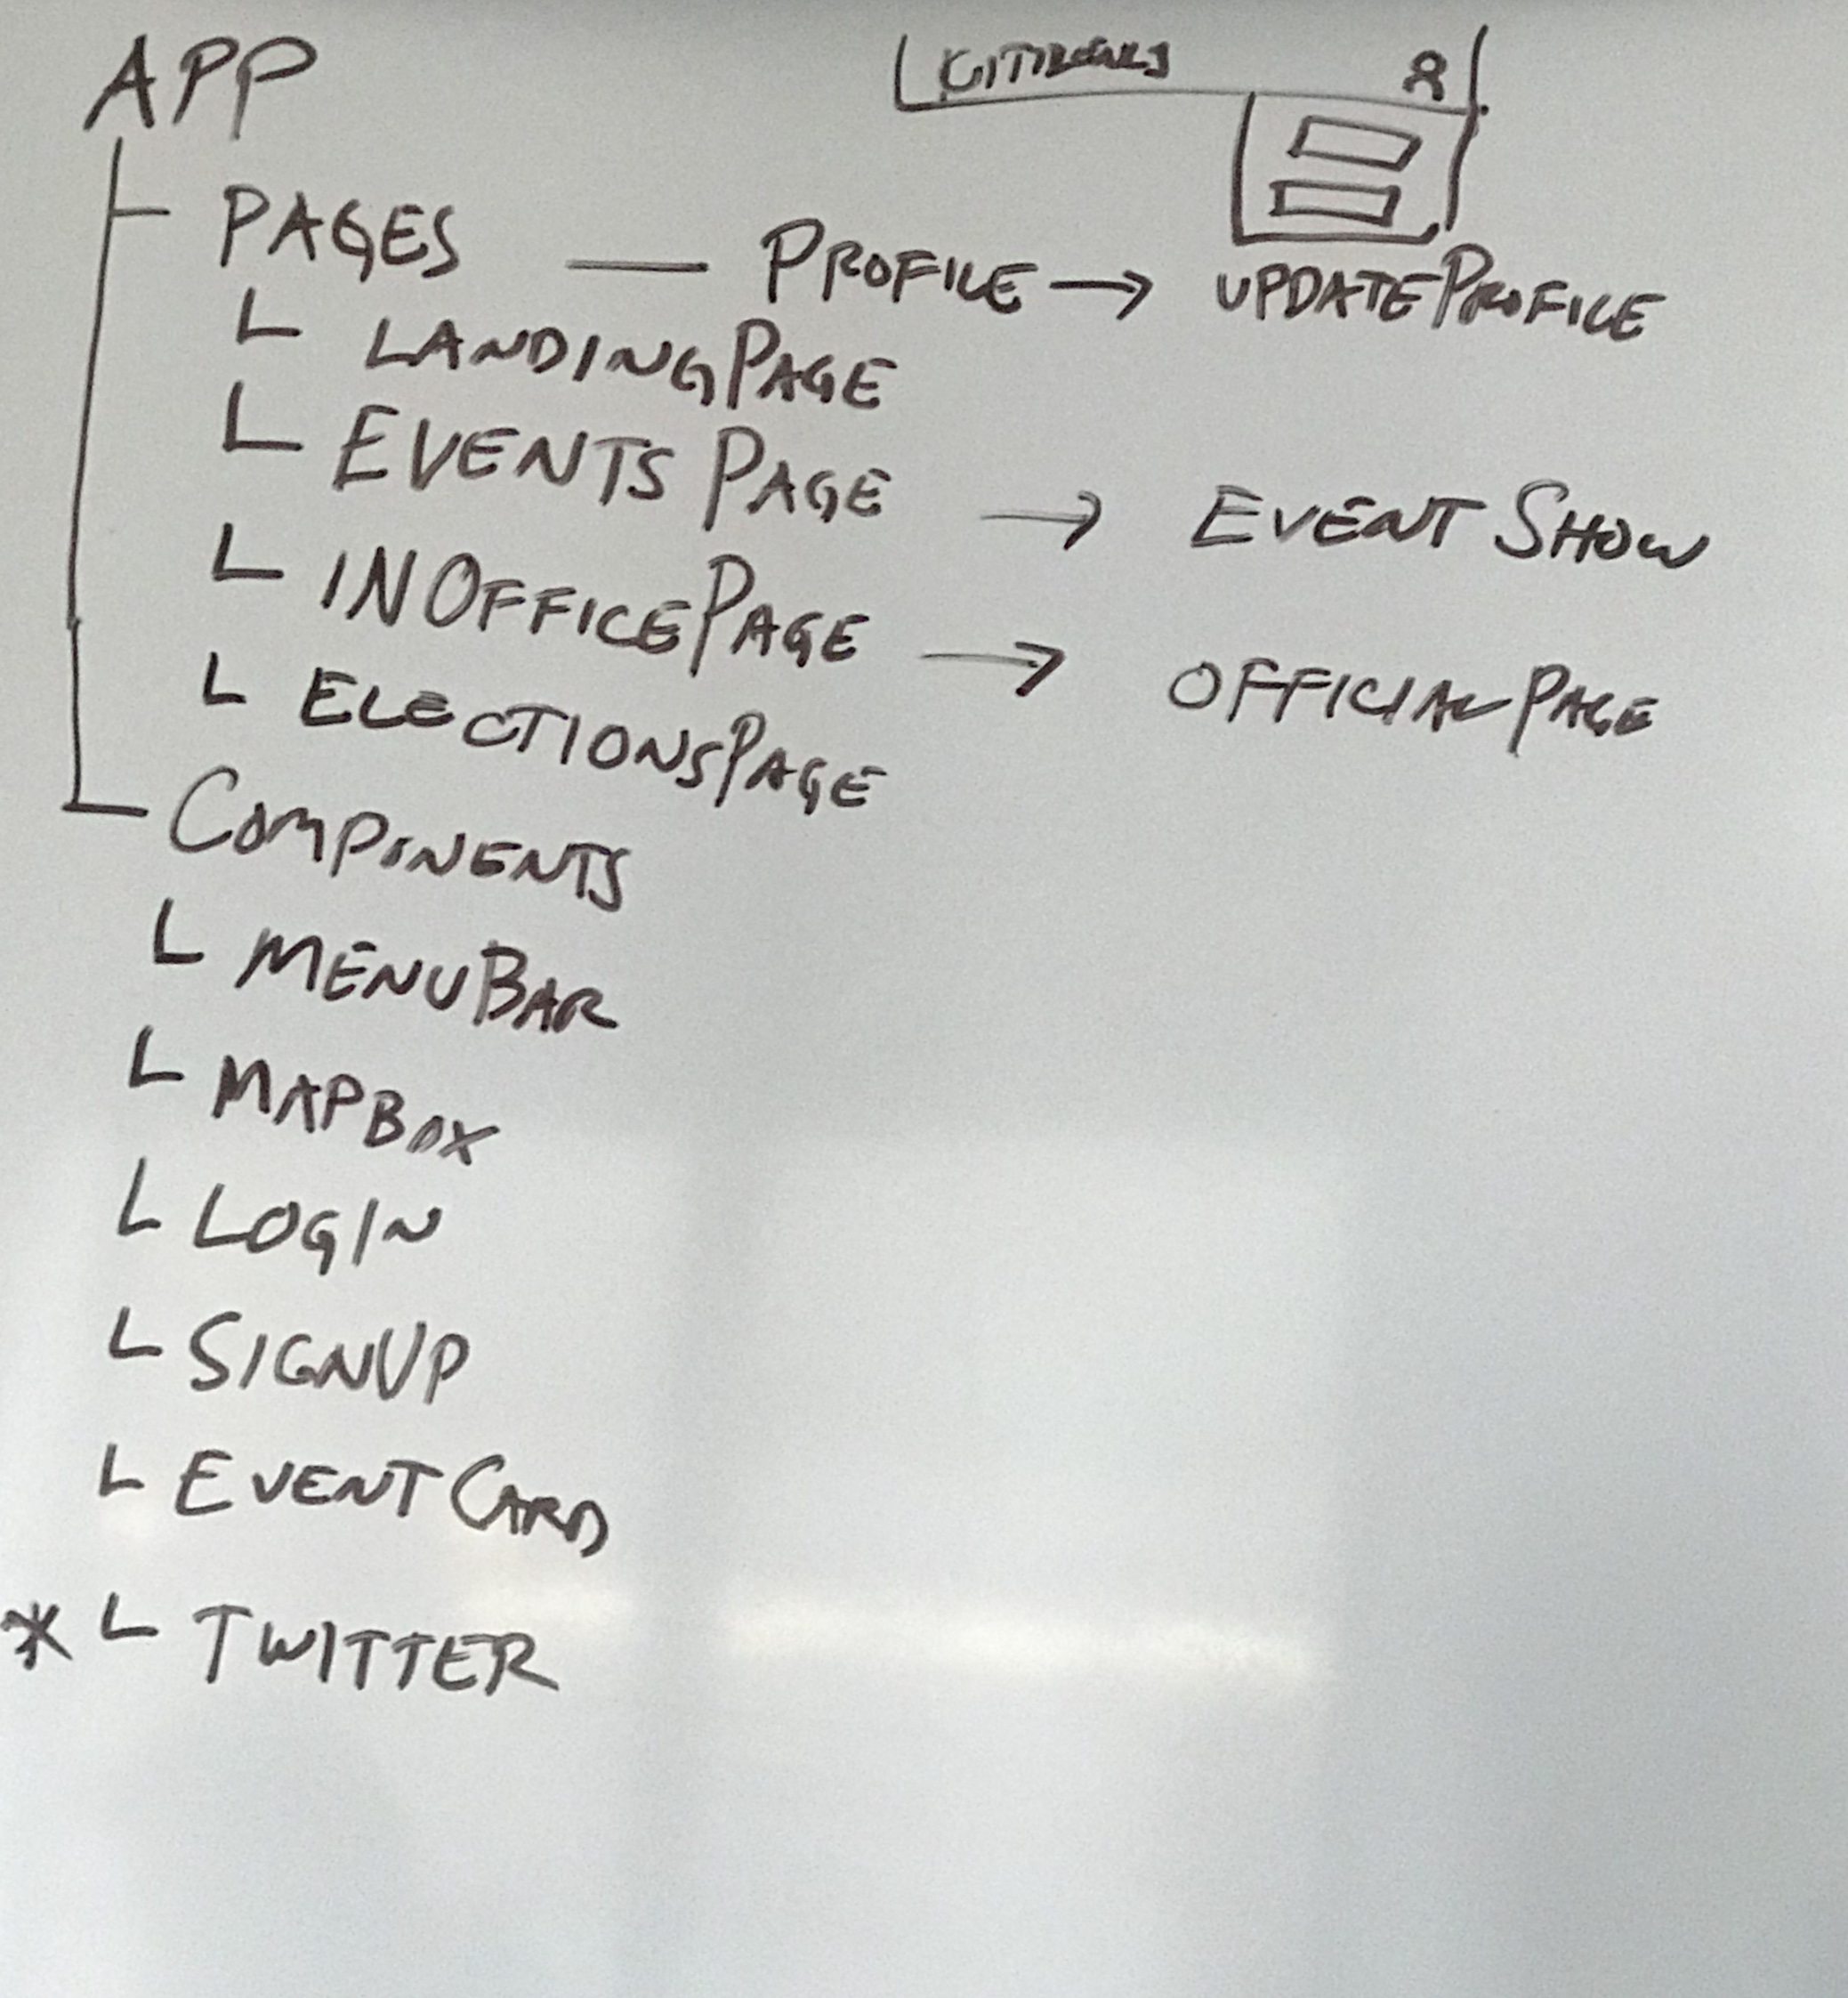 APP
PAGES — PROFILE → UPDATEPROFILE
L LANDINGPAGE
L EVENTSPAGE → EVENTSHOW
L INOFFICEPAGE → OFFICIALPAGE
L ELECTIONSPAGE
COMPONENTS
L MENUBAR
L MAPBOX
L LOGIN
L SIGNUP
L EVENTCARD
* L TWITTER